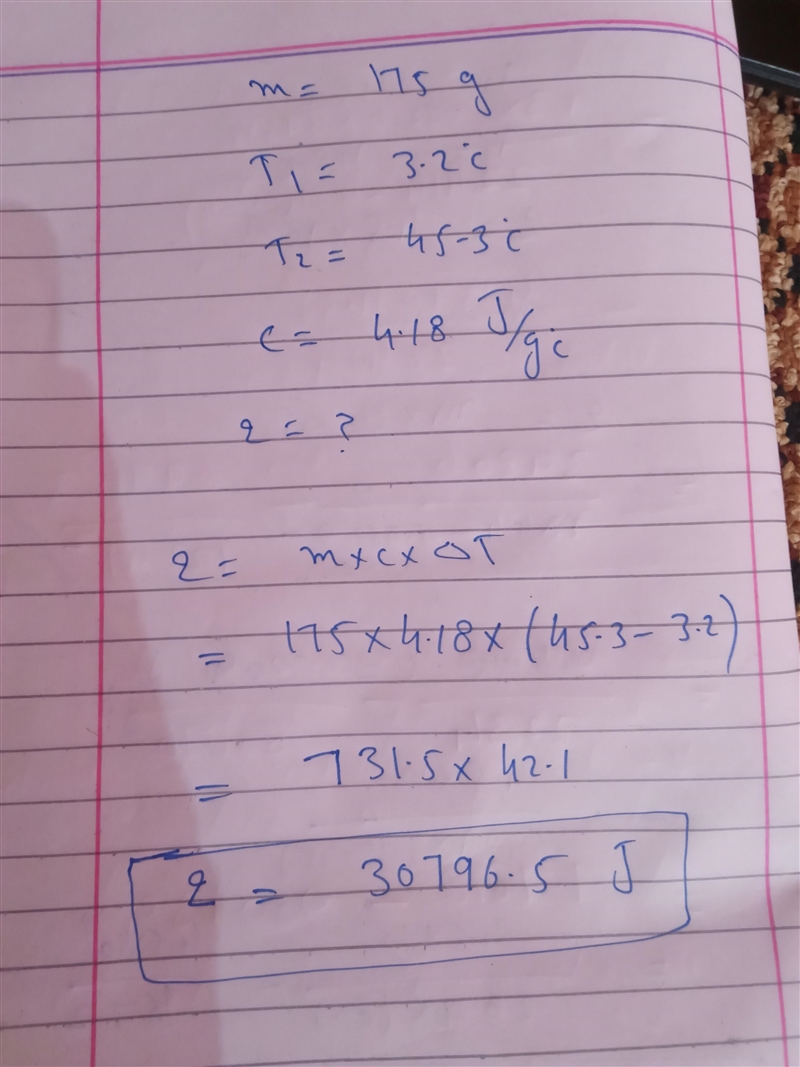 m = 175 g
T1 = 3.2°C
T2 = 45.3°C
c = 4.18 J/g°C
q = ?
q = m×c×ΔT
= 175×4.18×(45.3-3.2)
= 731.5×42.1
q = 30796.5 J